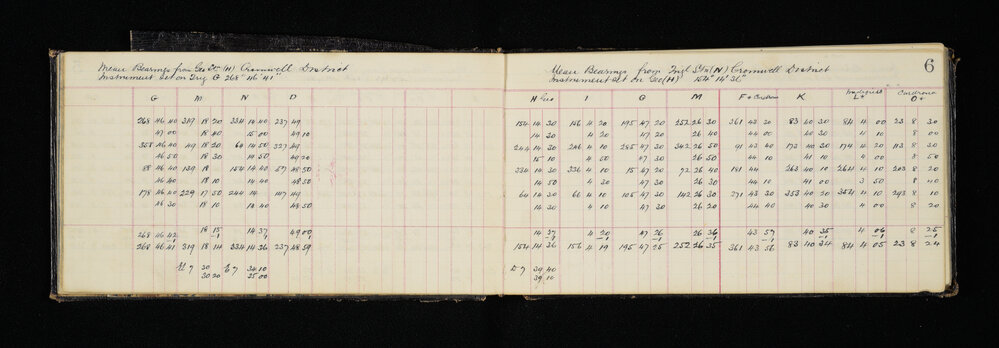 Mean Bearings from Geo Stn (H) Cromwell District
Instrument set on Trig G 268° 46' 41"
G M N D
268 46 40 319 18 20 334 14 40 237 49
47 00 18 40 15 00 49 10
358 46 40 49 18 20 64 14 50 327 49
46 50 18 30 14 50 49 20
88 46 40 139 18 154 14 40 57 48 50
46 40 18 10 14 40 48 50
178 46 40 229 17 50 244 14 147 49
46 30 18 10 14 40 48 50
268 46 42 18 15 14 37 49 00
-1 -1 -1 -1
268 46 41 319 18 14 334 14 36 237 48 59
30 34 10
30 20 35 00
6
Mean Bearings from Trig Stn (N) Cromwell District
Instrument set on Geo (H) 154° 14' 36"
H Geo I G M F + K L+ Cardrona O+
154 14 30 156 4 20 195 47 20 252 26 30 361 43 20 83 40 30 84 4 00 23 8 30
14 30 4 20 47 20 26 40 44 00 40 30 4 10 8 40
244 14 30 246 4 10 285 47 30 342 26 50 91 43 40 173 40 30 174 4 20 113 8 30
15 10 4 50 47 30 26 50 44 10 41 10 4 00 8 50
334 14 30 336 4 10 15 47 20 72 26 40 181 44 263 40 10 264 4 10 203 8 20
14 50 4 30 47 30 26 30 44 10 41 00 3 50 8 40
64 14 30 66 4 10 105 47 30 142 26 30 271 43 30 353 40 20 354 4 10 293 8 10
14 30 4 10 47 30 26 20 44 40 40 30 4 00 8 20
14 37 4 20 47 26 26 36 43 57 40 35 4 06 8 25
-1 -1 -1 -1 -1 -1 -1 -1
154 14 36 156 4 19 195 47 25 252 26 35 361 43 56 83 40 34 84 4 05 23 8 24
39 40
39 10